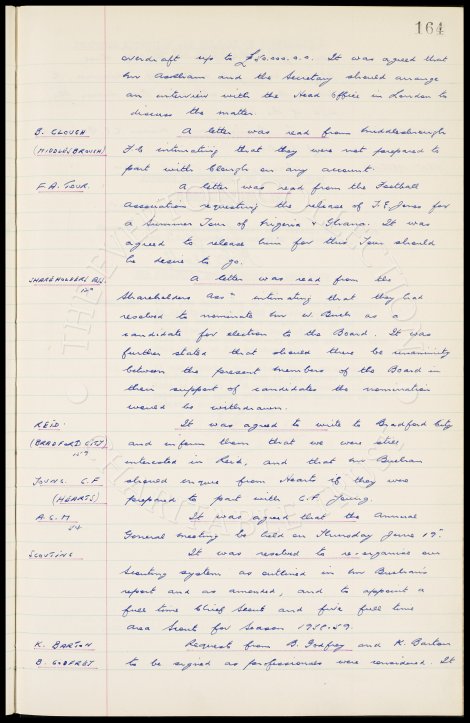 164
overdraft up to £50.000.0.0. It was agreed that
Mr Assham and the Secretary should arrange
an interview with the Head Office in London to
discuss the matter.
B. CLOUGH A letter was read from Middlesbrough
(MIDDLESBROUGH) F.C intimating that they were not prepared to
part with Clough on any account.
F.A. TOUR. A letter was read from the Football
Association requesting the release of T.E Jones for
a Summer Tour of Nigeria & Ghana. It was
agreed to release him for this Tour should
he desire to go.
SHAREHOLDERS ASS. A letter was read from the
Shareholders Assn intimating that they had
resolved to nominate Mr W. as a
candidate for election to the Board. It was
further stated that should there be unanimity
between the present members of the Board in
their support of candidates the nomination
would be withdrawn.
REID. It was agreed to write to Bradford City
(BRADFORD CITY) and inform them that we were still
interested in Reid, and that Mr Buchan
YOUNG. G.F should enquire from Hearts if they were
(HEARTS) prepared to part with G.F Young.
A.G.M It was agreed that the Annual
General Meeting be held on Thursday June 19th.
SCOUTING It was resolved to re-organise our
Scouting system as outlined in Mr Buchan's
report and as amended, and to appoint a
full time Chief Scout and five full time
area Scout for Season 1958-59.
K. BARTON Request from B. Godfrey and K. Barton
B. GODFREY to be signed as professionals were considered. It